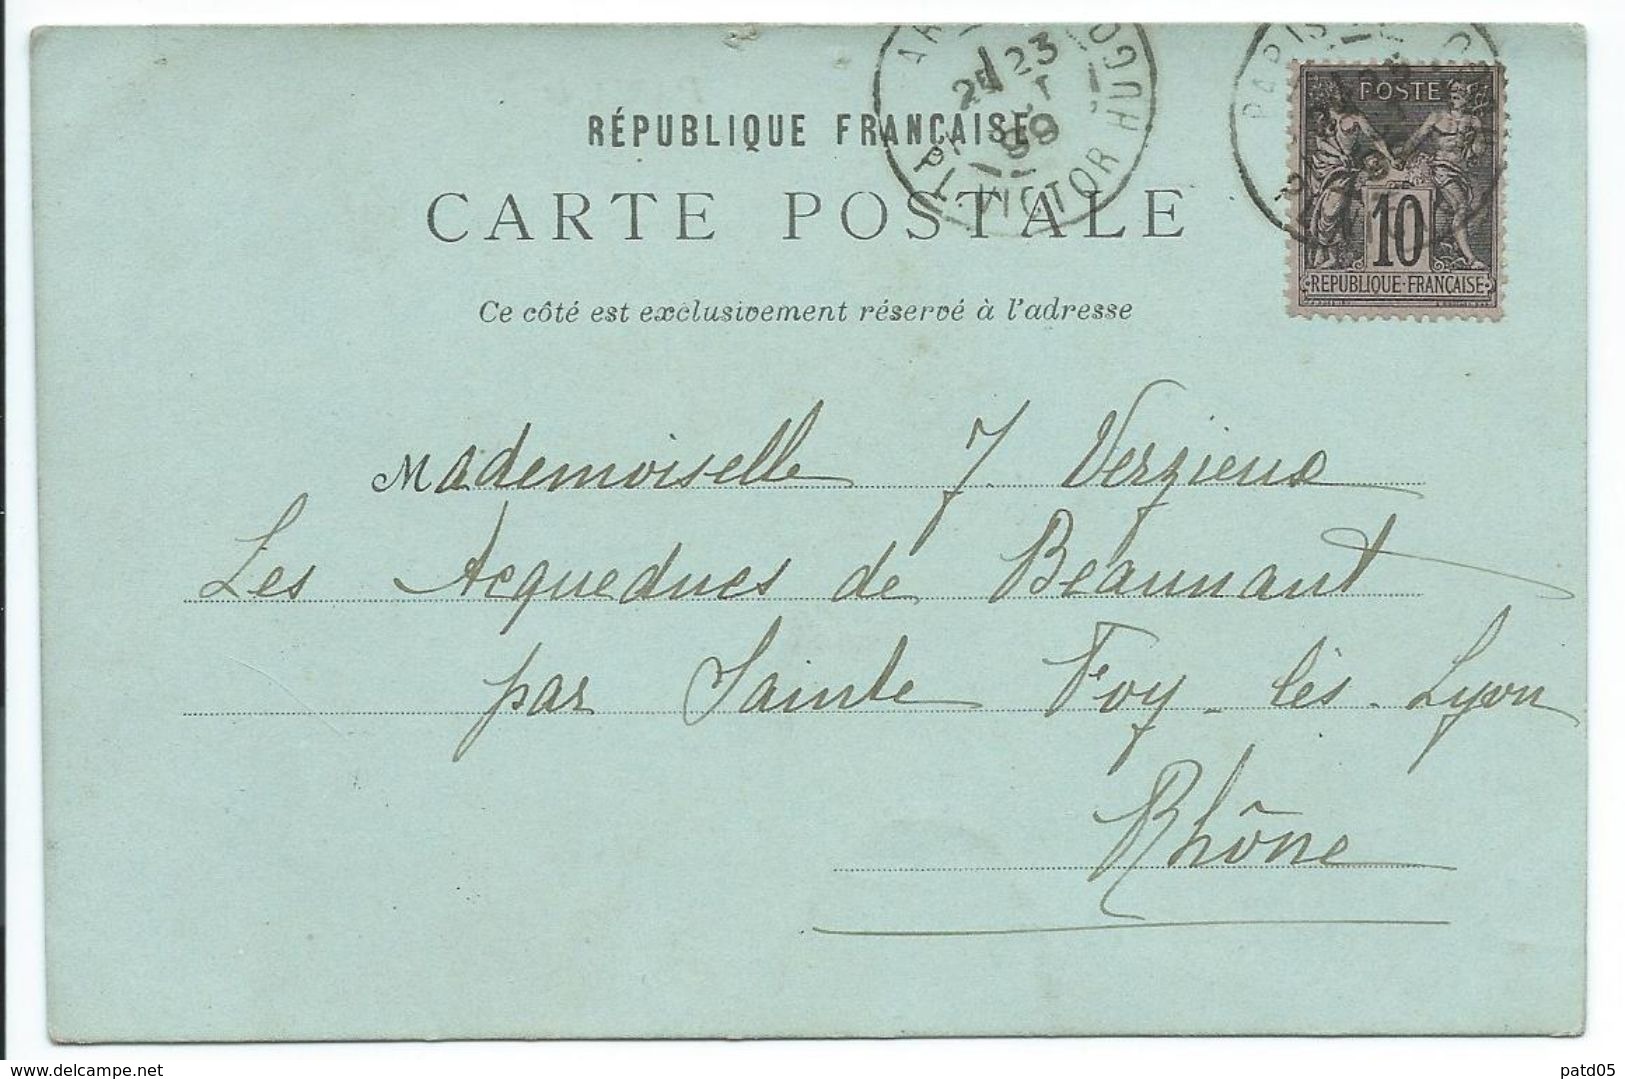 RÉPUBLIQUE FRANÇAISE
CARTE POSTALE
Ce côté est exclusivement réservé à l'adresse
PL. VICTOR HUGO
23
99
PARIS
POSTE
10
REPUBLIQUE FRANÇAISE
Mademoiselle J. Verzieux
Les Acqueducs de Beaunant
par Sainte Foy-lès-Lyon
Rhône
delcampe.net
patd05